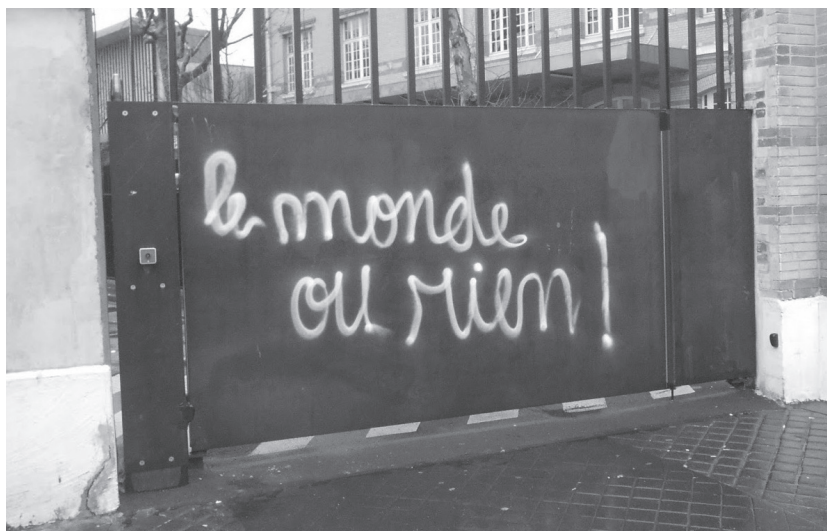 le monde
ou rien !